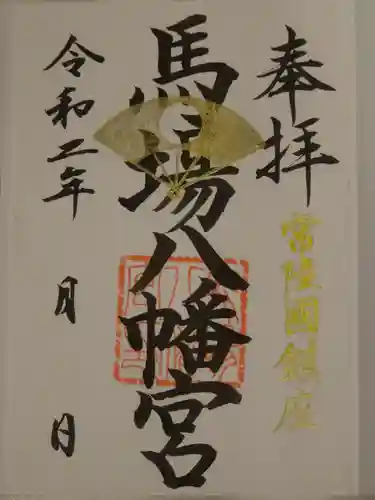 奉拝
常陸國鎮座
馬場八幡宮
令和二年
月
日